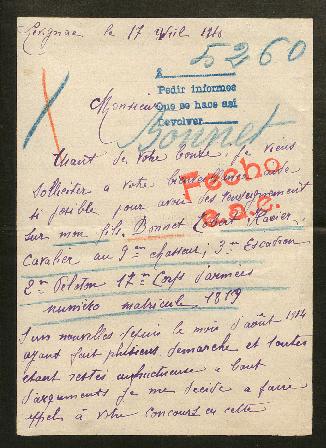 le 17 Avril 1916
5260
A
Pedir informes
Que se hace así
Devolver
Monsieur
Bonnet
Usant de votre bonté, je viens
solliciter a votre bienveillance
Fecho
si posible pour avoir des renseignement
sur mon fils Bonnet Robert Xavier
Cavalier au 9me chasseur, 3me Escadron
2me Peloton 17me Corps d'armée
numéro matricule 1819
Sans nouvelles depuis le mois d'août 1914
ayant fait plusieurs demarche et toutes
étant restés infructueuse a bout
d'arguments je me decide a faire
appel à votre concours en cette